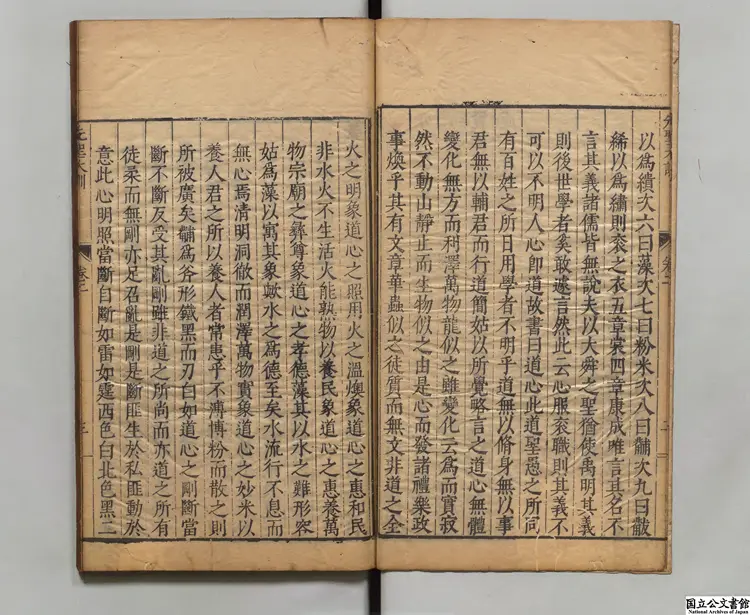 以爲繢次六曰藻次七曰粉米次八曰黼次九曰黻
絺以爲繡則衮之衣五章裳四章康成唯言其名不
言其義諸儒皆無說夫以大舜之聖猶使禹明其義
則後世學者奚敢遽言然此云心服衮職則其義不
可以不明人心卽道故書曰道心此道聖愚之所同
有百姓之所日用學者不明乎道無以脩身無以事
君無以輔君而行道簡姑以所覺略言之道心無體
變化無方而利澤萬物龍似之雖變化云爲而實寂
然不動山靜止而生物似之由是心而發諸禮樂政
事煥乎其有文章華蟲似之徒質而無文非道之全
火之明象道心之照用火之溫燠象道心之惠和民
非水火不生活火能熟物以養民象道心之惠養萬
物宗廟之彝尊象道心之孝德藻其以水之難形容
姑爲藻以寓其象歟水之爲德至矣水流行不息而
無心焉清明洞徹而潤澤萬物實象道心之妙米以
養人君之所以養人者常患乎不薄博粉而散之則
所被廣矣黼爲斧形鐵黑而刃白如道心之剛斷當
斷不斷反受其亂剛雖非道之所尚而亦道之所有
徒柔而無剛亦足召亂是剛是斷匪生於私匪動於
意此心明照當斷自斷如雷如霆西色白北色黑二
先聖大訓
卷二
三
国立公文書館
National Archives of Japan